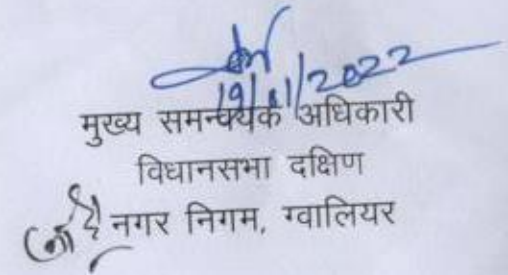 19/01/2022
मुख्य समन्वयक अधिकारी
विधानसभा दक्षिण
नगर निगम, ग्वालियर